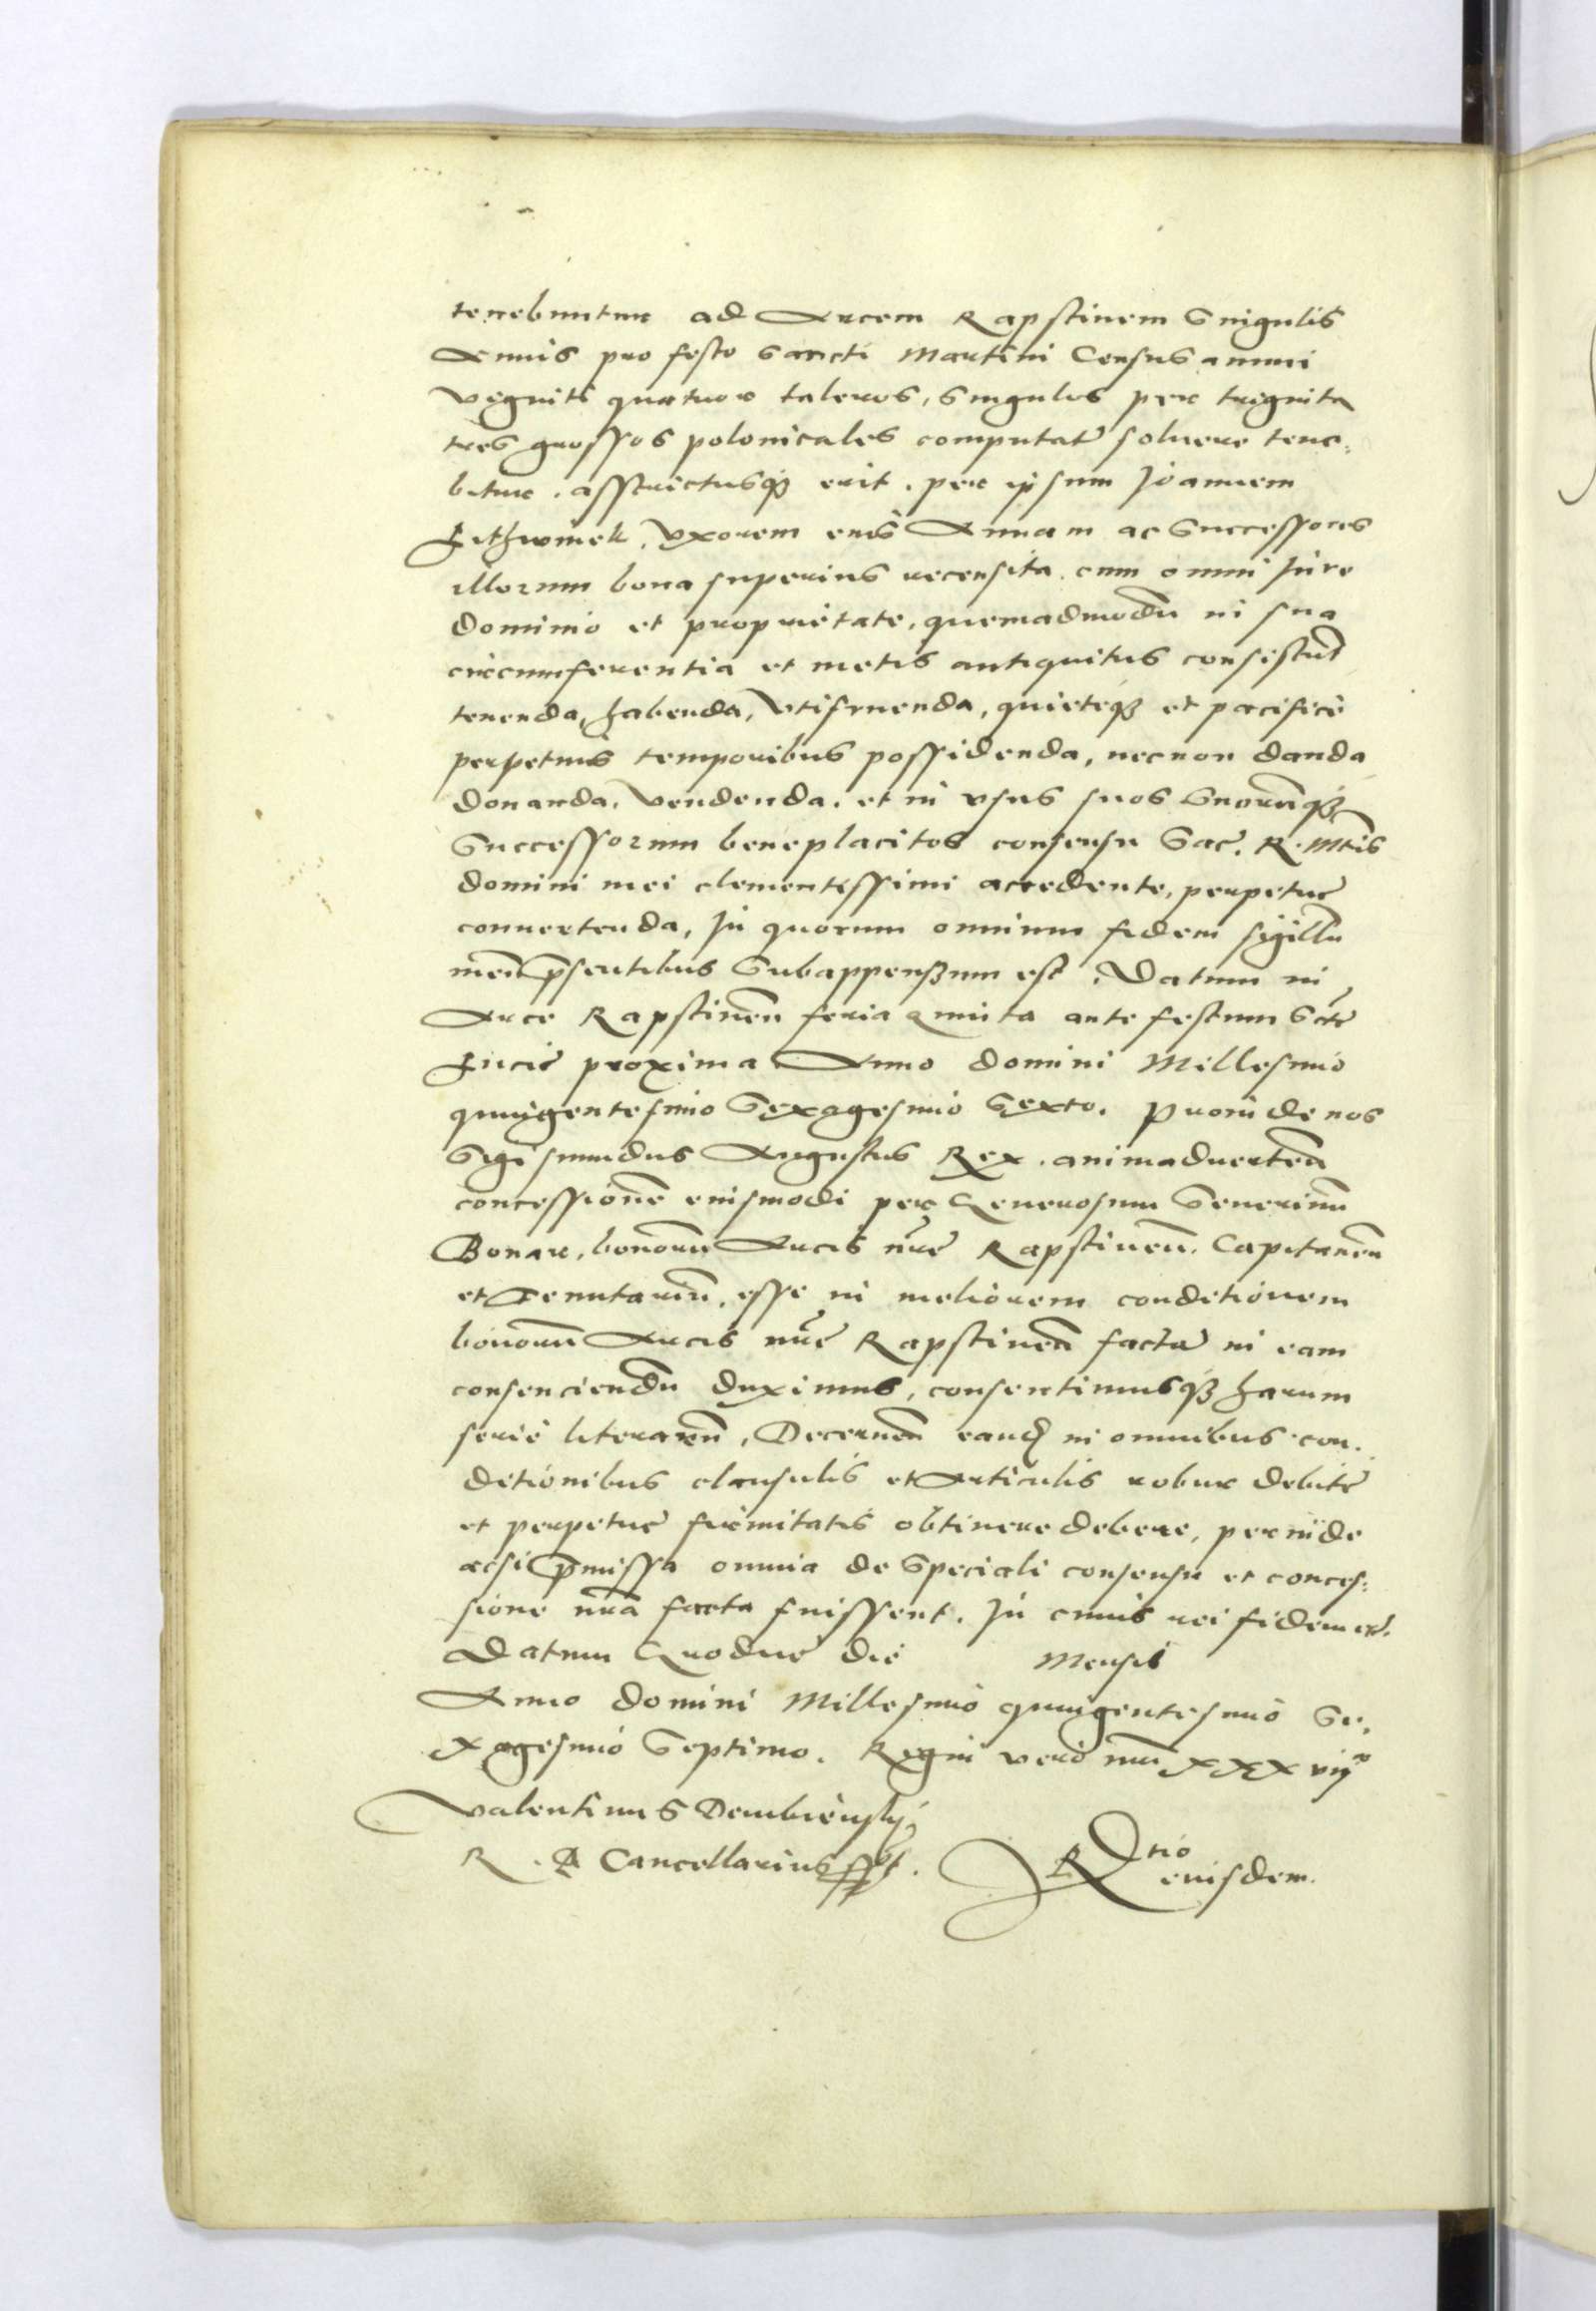 tenebuntur ad Arcem Rapstinem Singulis
Annis pro festo Sancti Martini Census annui
Viginti quatuor taleros, Singulos per triginta
tres grossos polonicales computatˀ soluere tene:
bitur. asstrictusqȝ erit. per ipsum Joannem
Vxorem eius Annam ac Successores
illorum bona superius recensita. cum omni Jure
dominio et proprietate, quemadmodũ in sua
circumferentia et metis antiquitus consistũt
tenenda, habenda, Vtifruenda, quieteqȝ et pacifice
perpetuis temporibus possidenda, necnon danda
donanda, Vendenda. et in vsus suos Suorũqȝ
Successorum beneplacitos consensu Sac. R. Mtis
domini mei clementissimi accedente, perpetue
conuertenda, In quorum omnium fidem sigillũ
meũ p̃sentibus Subappensum est. Datum in
Arce Rapstineñ feria quinta ante festum Scte
Lucie proxima Anno domini Millesimo
quingentesimo Sexagesimo Sexto. Proinde nos
Sigismundus Augustus Rex. animaduerteñ
concessionẽ eiusmodi per Generosum Seuerinũ
Bonar, bonorũ Arcis nr̃e Rapstineñ. Capitaneũ
et Tenutariũ, esse in meliorem conditionem
bonorũ Arcis nr̃e Rapstineñ factã in eam
consenciendũ duximus, consentimusqȝ harum
serie literarũ, Decerneñ eand in omnibus con:
ditionibus clausulis et Articulis robur debite
et perpetue firmitatis obtinere debere, perinde
acsi p̃missa omnia de Speciali consensu et conces:
sione nr̃a facta fuissent. In cuius rei fidem etc.
Datum Quodue die Mensis
Anno domini Millesimo quingentesimo Se:
xagesimo Septimo. Regni vero nr̃i XXXviijo
Valentinus Dembienskj
R. P. Cancellarius sspt.
Rtio eiusdem.